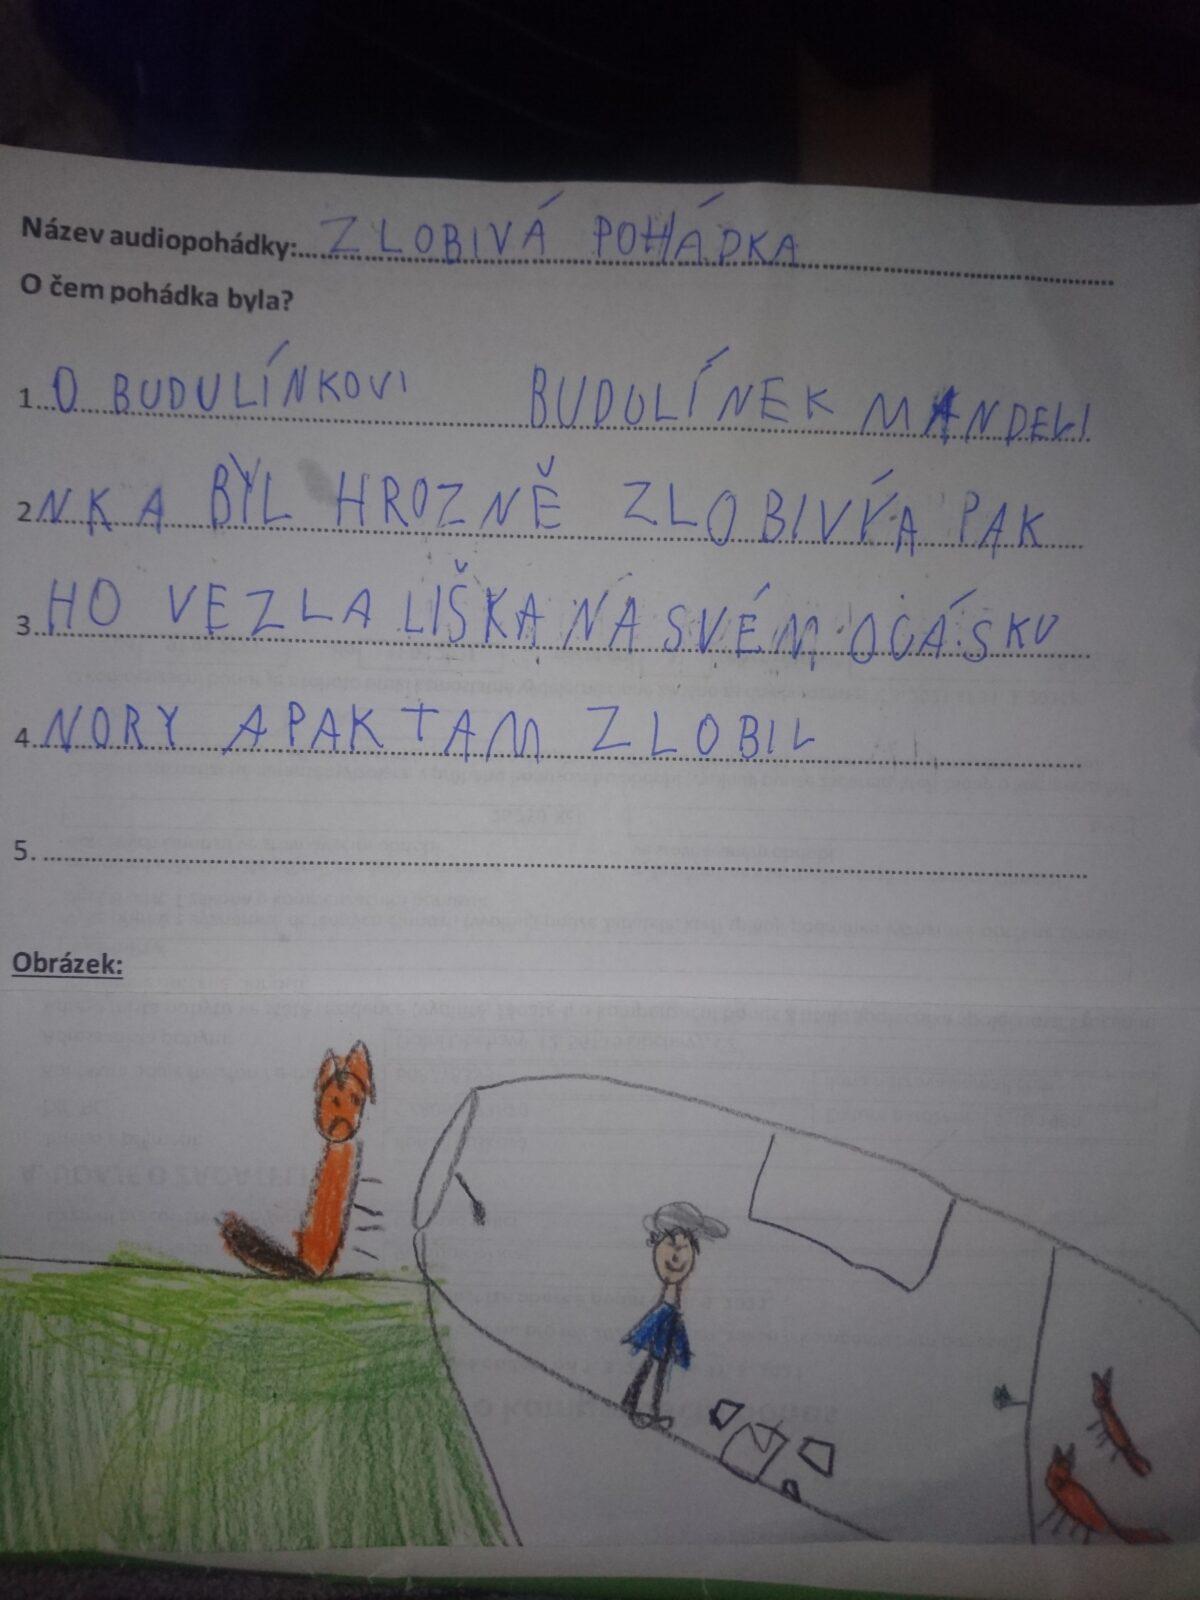 Název audiopohádky: ZLOBIVÁ POHÁDKA
O čem pohádka byla?
1. O BUDULÍNKOVI BUDULÍNEK MANDELI
2. NKA BYL HROZNĚ ZLOBIVÝ A PAK
3. HO VEZLA LIŠKA NA SVÉM OCÁSKU
4. NORY A PAK TAM ZLOBIL
5.
Obrázek: